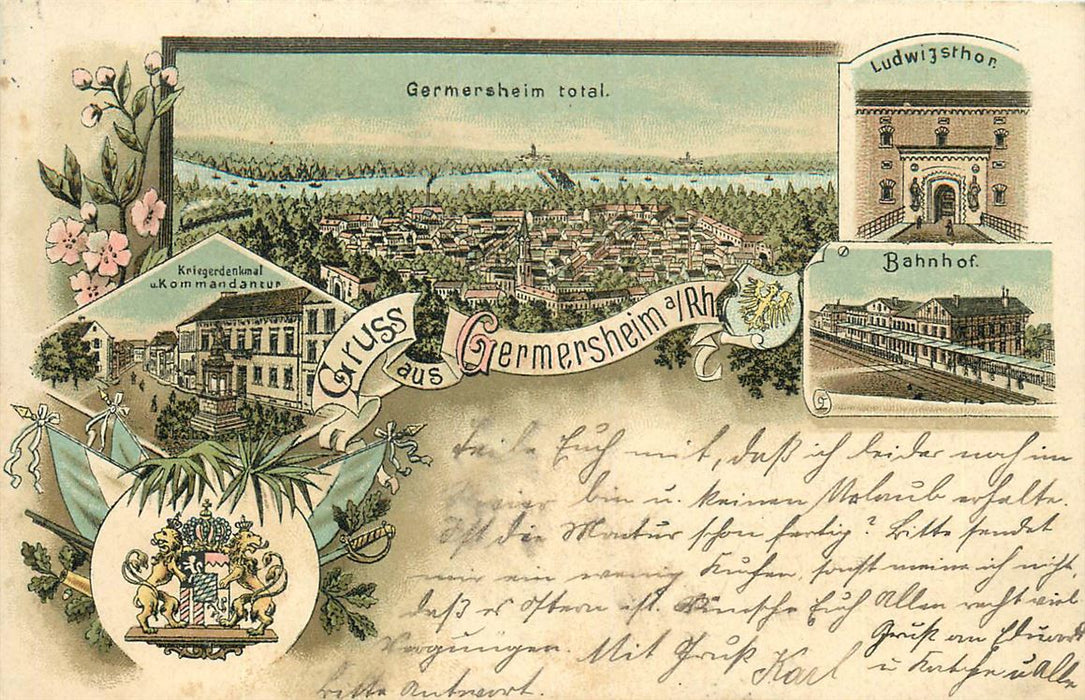 Germersheim total.
Ludwigsthor.
Bahnhof.
Kriegerdenkmal
u. Kommandantur
Gruss
aus
Germersheim a/Rh
Teile Euch mit, daß ich leider noch im
bin u. keinen Urlaub erhalte.
Ist die Montur schon fertig? Bitte sendet
mir ein wenig Kuchen, sonst meine ich nicht,
daß es Ostern ist. Wünsche Euch Allen recht viel
Vergnügen. Mit Gruß Karl
Bitte Antwort.
Gruß an Eduard
u u Alle